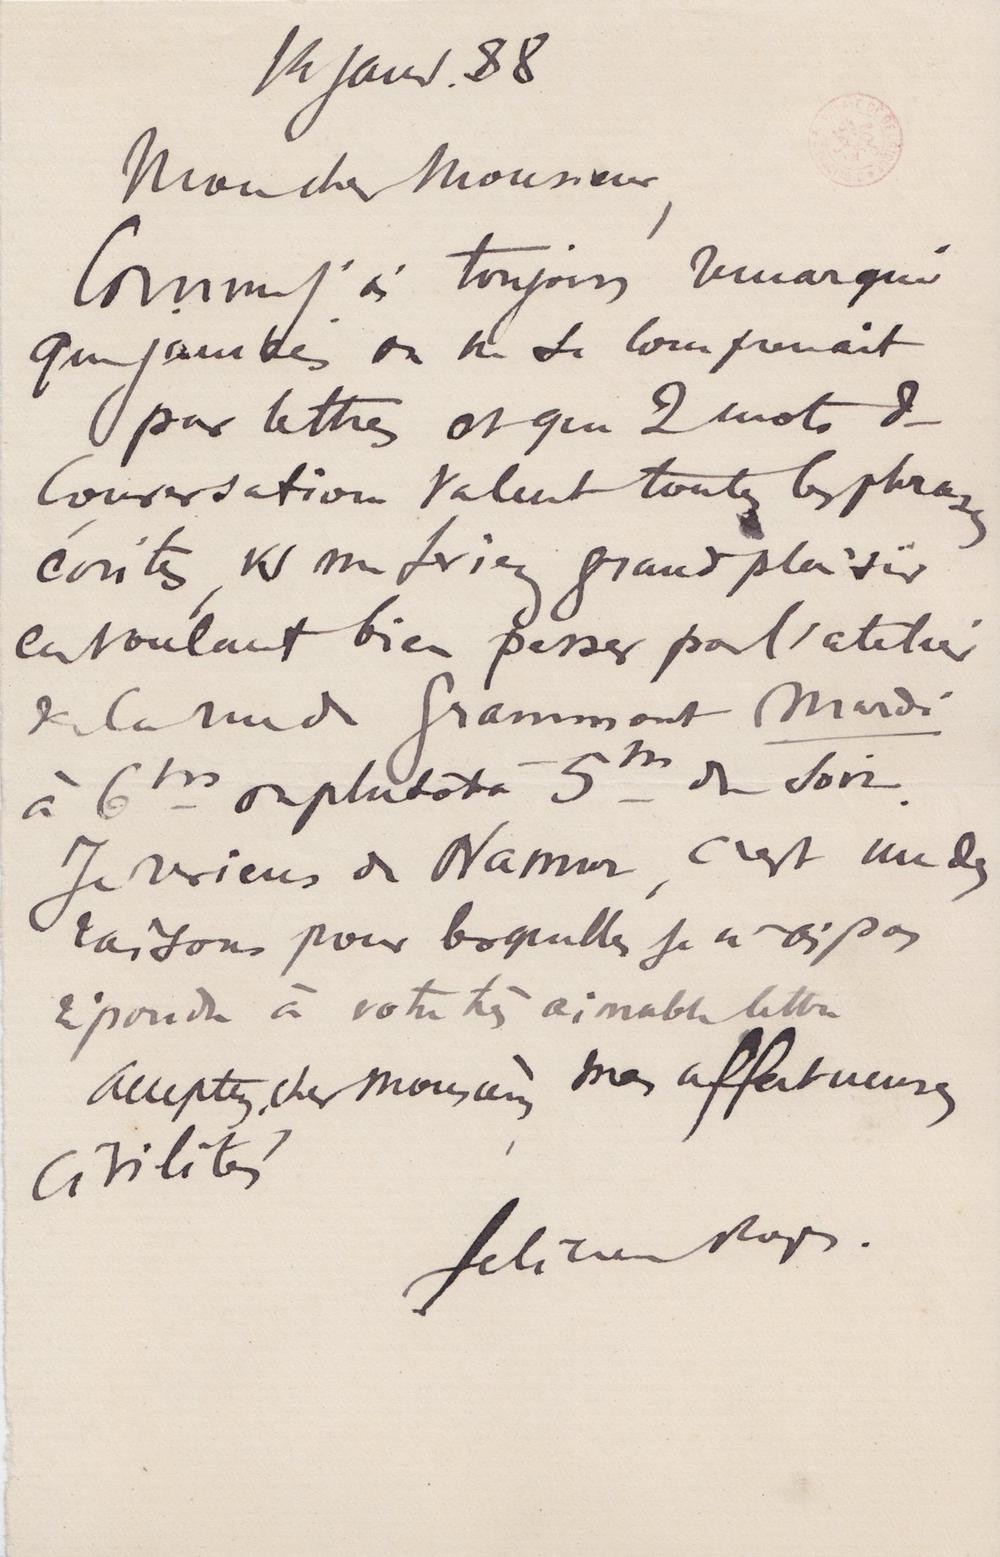 14 Janv. 88
Mon cher Monsieur,
Comme j'ai toujours remarqué
que jamais on ne se comprenait
par lettres et que 2 mots de
Conversation valent toutes les phrases
écrites, vs me feriez grand plaisir
en voulant bien passer par l'atelier
de la rue de Grammont Mardi
à 6 hrs ou plutôt à 5 hrs du soir.
Je reviens de Namur, c'est une des
raisons pour lesquelles je n'ai pas
répondu à votre très aimable lettre
Acceptez, cher Monsieur, mes affectueuses
Civilités
Félicien Rops.